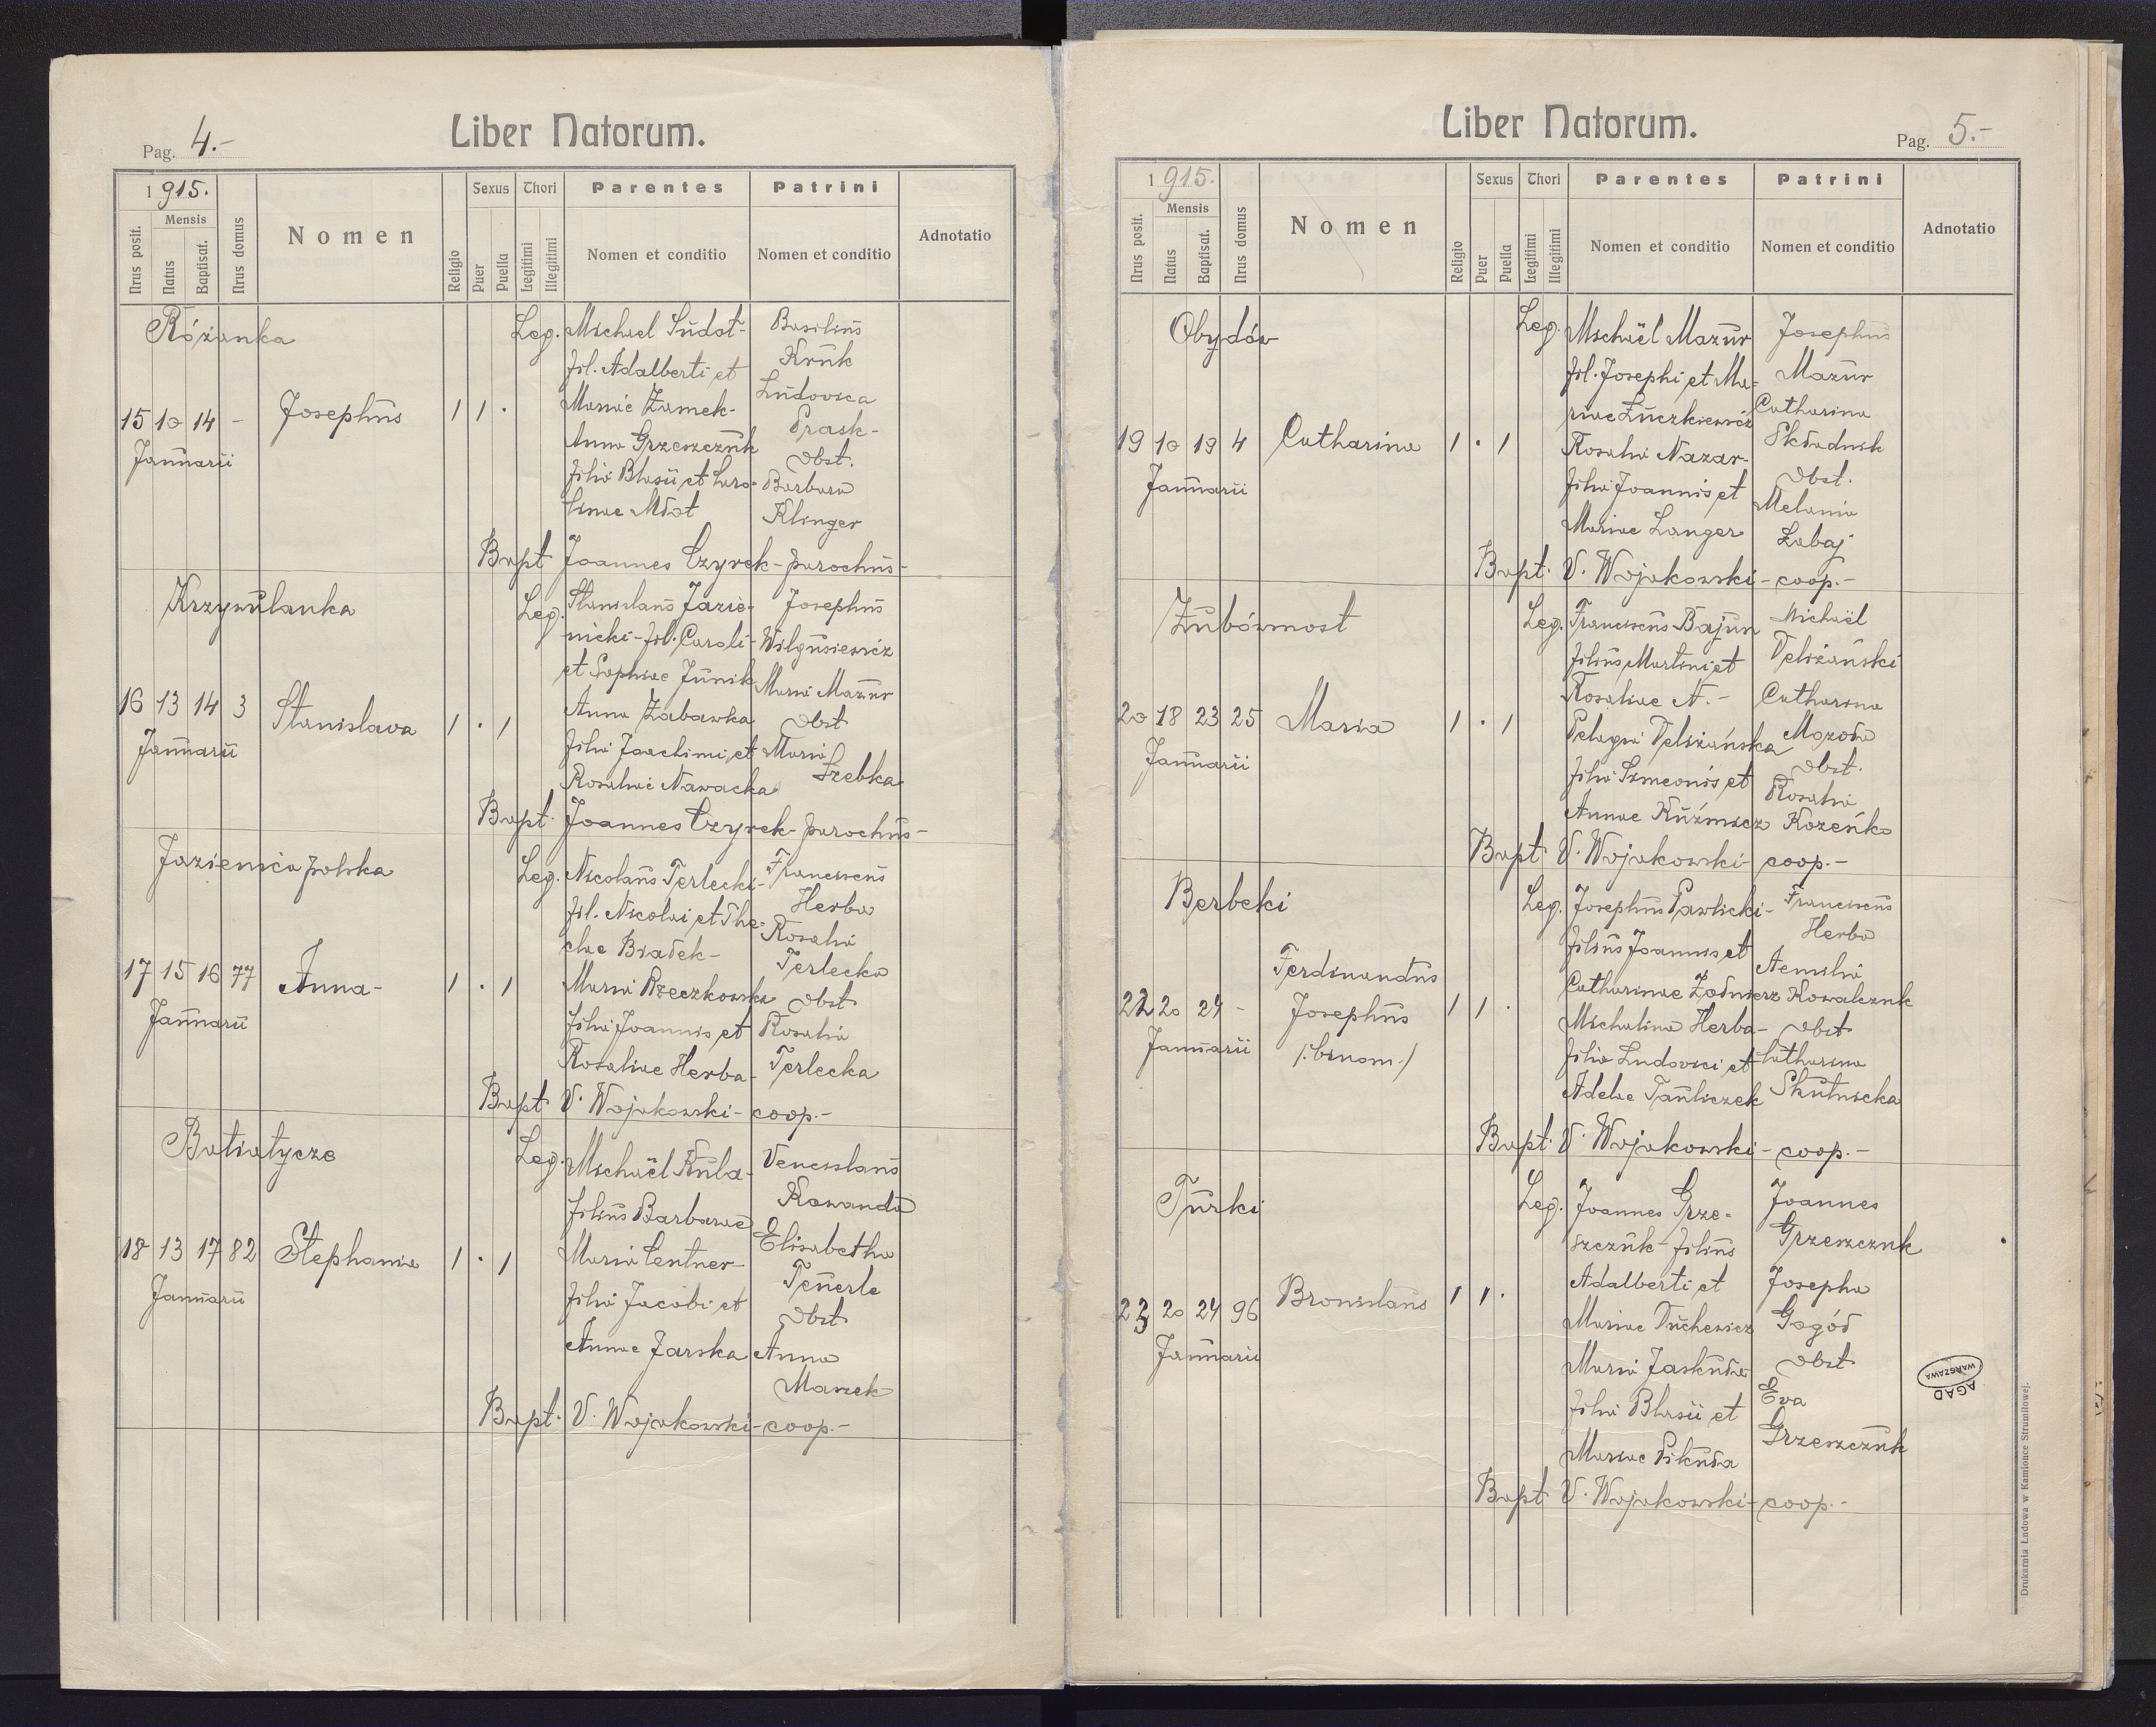 Pag. 4.-
Liber Natorum.
1915.
Nrus posit.
Mensis
Natus
Baptisat.
Nrus domus
Nomen
Religio
Sexus
Puer
Puella
Thori
Legitimi
Illegitimi
Parentes
Nomen et conditio
Patrini
Nomen et conditio
Adnotatio
Różanka
15 10 14 -
Januarii
Josephus
1 1 ·
Leg.
Michael Sudoł-
fil. Adalberti et
Mariae Zamek-
Anna Grzeszczuk
filia Blasii et Caro-
linae Młot
Basilius
Kruk
Ludovica
Prask-
Obst.
Barbara
Klinger
Bapt Joannes Czyrek - parochus-
Krzywulanka
16 13 14 3
Januarii
Stanislava
1 · 1
Leg.
Stanislaus Jazie-
nicki - fil. Caroli-
et Sophiae Junik
Anna Zabawka
filia Joachimi et
Rosaliae Nawacka
Josephus
Wilgusiewicz
Maria Mazur
Obst
Maria
Szebka
Bapt. Joannes Czyrek - parochus-
Jazienica polska
17 15 16 77
Januarii
Anna-
1 · 1
Leg.
Nicolaus Terlecki-
fil. Nicolai et The-
clae Białek-
Maria Rzeczkowska
filia Joannis et
Rosaliae Herba-
Franciscus
Herba
Rosalia
Terlecka
Obst
Rosalia
Terlecka
Bapt V. Wojakowski - coop.-
Batiatycze
18 13 17 82
Januarii
Stephania
1 · 1
Leg.
Michaël Kula-
filius Barbarae
Maria Centner-
filia Jacobi et
Annae Jarska
Venceslaus
Kowanda
Elisabetha
Teuerle
Obst
Anna
Marzek
Bapt. V. Wojakowski - coop.-
Liber Natorum.
Pag. 5.-
1915.
Nrus posit.
Mensis
Natus
Baptisat.
Nrus domus
Nomen
Religio
Sexus
Puer
Puella
Thori
Legitimi
Illegitimi
Parentes
Nomen et conditio
Patrini
Nomen et conditio
Adnotatio
Obydów
19 10 19 4
Januarii
Catharina
1 · 1
Leg.
Michaël Mazur
fil. Josephi et Ma-
riae Łuczkiewicz
Rosalia Nazar-
filia Joannis et
Mariae Langer
Josephus
Mazur
Catharina
Składnik
Obst.
Melania
Zabaj
Bapt. V. Wojakowski - coop.-
Zubówmost
20 18 23 25
Januarii
Maria
1 · 1
Leg.
Franciscus Bajun
filius Martini et
Rosaliae N.-
Pelagia Deliżańska
filia Simeonis et
Annae Kuźmicz
Michaël
Deliżański
Catharina
Mozoła
Obst.
Rosalia
Kozeńko
Bapt V. Wojakowski - coop.-
Berbeki
22 20 24 -
Januarii
Ferdinandus
Josephus
/:binom:/
1 1 ·
Leg.
Josephus Pawlicki-
filius Joannis et
Catharinae Żołnierz
Michalina Herba-
filia Ludovici et
Adelae Pauliczek
Franciscus
Herba
Aemilia
Kowalczuk
Obst
Catharina
Skutnicka
Bapt. V. Wojakowski - coop.-
Turki
23 20 24 96
Januarii
Bronislaus
1 1 ·
Leg.
Joannes Grze-
szczuk - filius
Adalberti et
Mariae Duchewicz
Maria Jaskuła
filia Blasii et
Mariae Pikuła
Joannes
Grzeszczuk
Josepha
Gogół
Obst
Eva
Grzeszczuk
Bapt V. Wojakowski - coop.-
AGAD
WARSZAWA
Drukarnia Ludowa w Kamionce Strumiłowej.